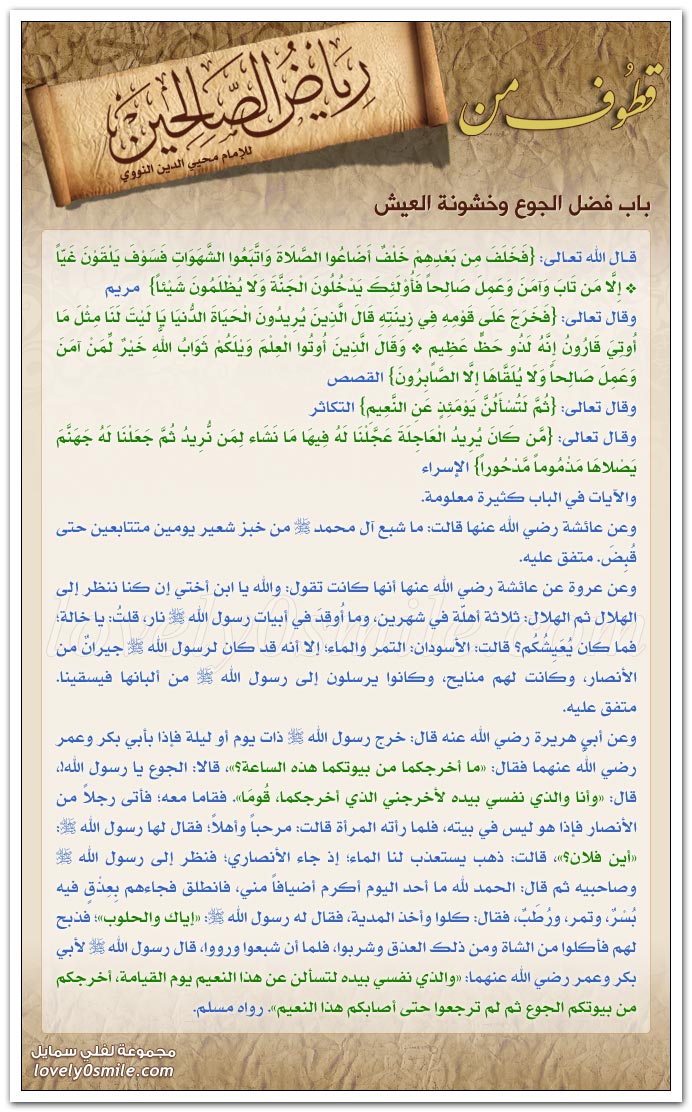 قطوف من
رياض الصالحين
للإمام محيي الدين النووي
باب فضل الجوع وخشونة العيش
قال الله تعالى: {فَخَلَفَ مِن بَعْدِهِمْ خَلْفٌ أَضَاعُوا الصَّلَاةَ وَاتَّبَعُوا الشَّهَوَاتِ فَسَوْفَ يَلْقَوْنَ غَيّاً
❖ إِلَّا مَن تَابَ وَآمَنَ وَعَمِلَ صَالِحاً فَأُوْلَئِكَ يَدْخُلُونَ الْجَنَّةَ وَلَا يُظْلَمُونَ شَيْئاً} مريم
وقال تعالى: {فَخَرَجَ عَلَى قَوْمِهِ فِي زِينَتِهِ قَالَ الَّذِينَ يُرِيدُونَ الْحَيَاةَ الدُّنْيَا يَا لَيْتَ لَنَا مِثْلَ مَا
أُوتِيَ قَارُونُ إِنَّهُ لَذُو حَظٍّ عَظِيمٍ ❖ وَقَالَ الَّذِينَ أُوتُوا الْعِلْمَ وَيْلَكُمْ ثَوَابُ اللَّهِ خَيْرٌ لِّمَنْ آمَنَ
وَعَمِلَ صَالِحاً وَلَا يُلَقَّاهَا إِلَّا الصَّابِرُونَ} القصص
وقال تعالى: {ثُمَّ لَتُسْأَلُنَّ يَوْمَئِذٍ عَنِ النَّعِيمِ} التكاثر
وقال تعالى: {مَّن كَانَ يُرِيدُ الْعَاجِلَةَ عَجَّلْنَا لَهُ فِيهَا مَا نَشَاء لِمَن نُّرِيدُ ثُمَّ جَعَلْنَا لَهُ جَهَنَّمَ
يَصْلاهَا مَذْمُوماً مَّدْحُوراً} الإسراء
والآيات في الباب كثيرة معلومة.
وعن عائشة رضي الله عنها قالت: ما شبع آل محمد ﷺ من خبز شعير يومين متتابعين حتى
قُبِضَ. متفق عليه.
وعن عروة عن عائشة رضي الله عنها أنها كانت تقول: والله يا ابن أختي إن كنا ننظر إلى
الهلال ثم الهلال: ثلاثة أهلّة في شهرين، وما أُوقِدَ في أبيات رسول الله ﷺ نار، قلتُ: يا خالة؛
فما كان يُعَيِشُكُم؟ قالت: الأسودان: التمر والماء؛ إلا أنه قد كان لرسول الله ﷺ جيرانٌ من
الأنصار، وكانت لهم منايح، وكانوا يرسلون إلى رسول الله ﷺ من ألبانها فيسقينا.
متفق عليه.
وعن أبي هريرة رضي الله عنه قال: خرج رسول الله ﷺ ذات يوم أو ليلة فإذا بأبي بكر وعمر
رضي الله عنهما فقال: «ما أخرجكما من بيوتكما هذه الساعة؟»، قالا: الجوع يا رسول الله!،
قال: «وأنا والذي نفسي بيده لأخرجني الذي أخرجكما، قُومَا». فقاما معه؛ فأتى رجلاً من
الأنصار فإذا هو ليس في بيته، فلما رأته المرأة قالت: مرحباً وأهلاً؛ فقال لها رسول الله ﷺ:
«أين فلان؟»، قالت: ذهب يستعذب لنا الماء؛ إذ جاء الأنصاري؛ فنظر إلى رسول الله ﷺ
وصاحبيه ثم قال: الحمد لله ما أحد اليوم أكرم أضيافاً مني، فانطلق فجاءهم بِعِذْقٍ فيه
بُسْرٌ، وتمر، ورُطَبٌ، فقال: كلوا وأخذ المدية، فقال له رسول الله ﷺ: «إياك والحلوب»؛ فذبح
لهم فأكلوا من الشاة ومن ذلك العذق وشربوا، فلما أن شبعوا ورووا، قال رسول الله ﷺ لأبي
بكر وعمر رضي الله عنهما: «والذي نفسي بيده لتسألن عن هذا النعيم يوم القيامة، أخرجكم
من بيوتكم الجوع ثم لم ترجعوا حتى أصابكم هذا النعيم». رواه مسلم.
lovely0smile.com
مجموعة لفلي سمايل
lovely0smile.com